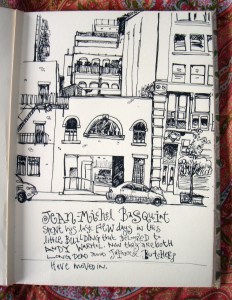 JEAN-Michel BASQUIAT
spent his last FEW days in this
little Building that belonged to
ANDY WARHOL. Now they are both
LONG DEAD and Japanese Butchers
Have moved in.